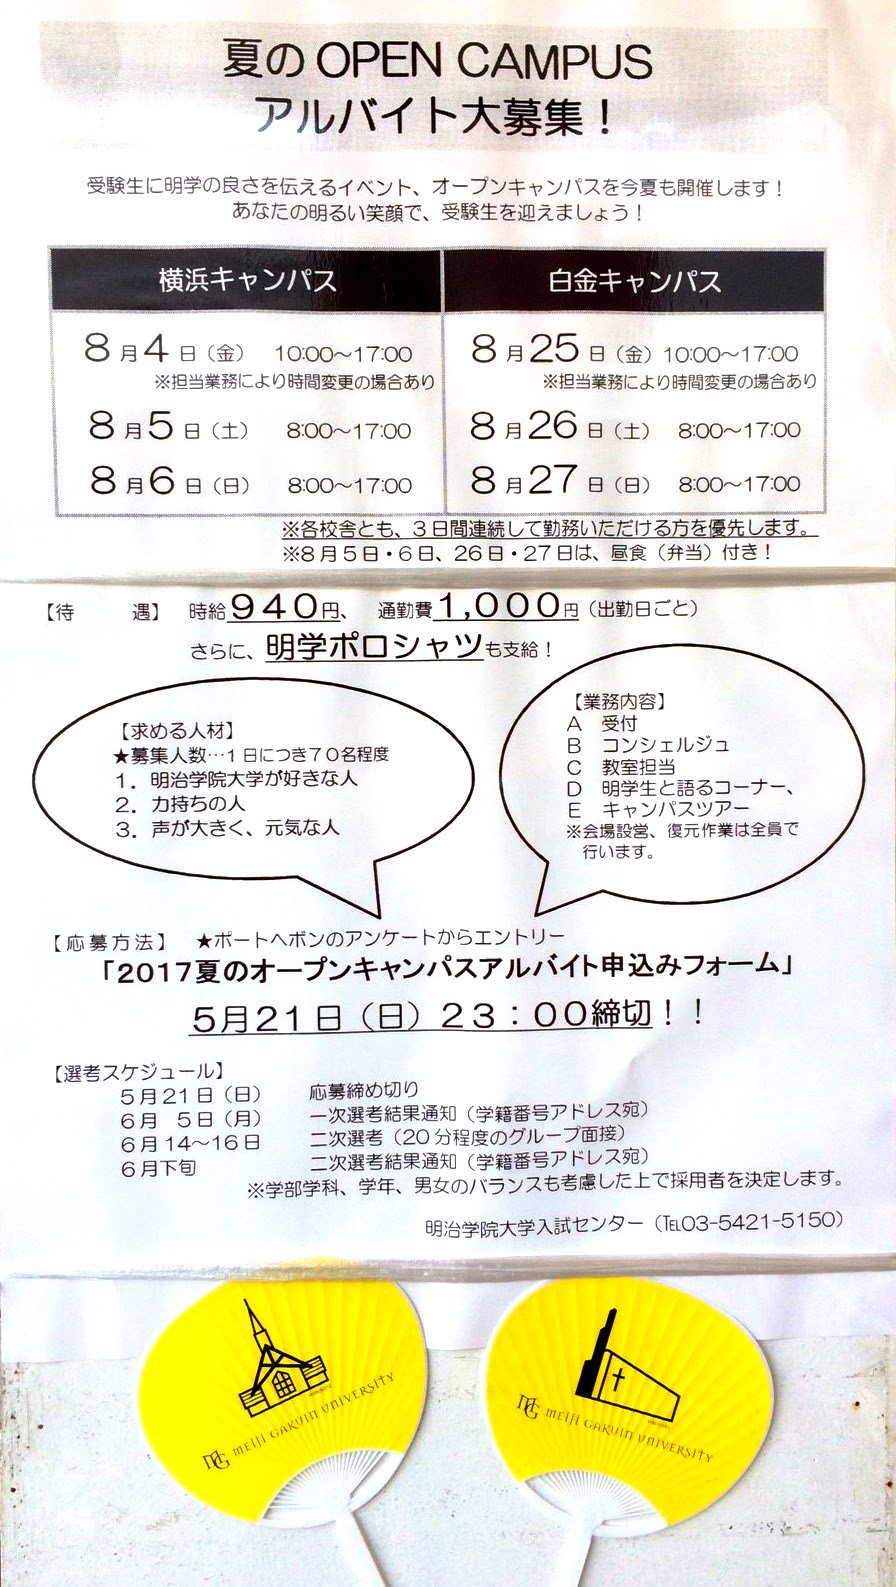 夏の OPEN CAMPUS
アルバイト大募集！
受験生に明学の良さを伝えるイベント、オープンキャンパスを今夏も開催します！
あなたの明るい笑顔で、受験生を迎えましょう！
横浜キャンパス
8月4日（金） 10:00～17:00
※担当業務により時間変更の場合あり
8月5日（土） 8:00～17:00
8月6日（日） 8:00～17:00
白金キャンパス
8月25日（金）10:00～17:00
※担当業務により時間変更の場合あり
8月26日（土） 8:00～17:00
8月27日（日） 8:00～17:00
※各校舎とも、３日間連続して勤務いただける方を優先します。
※８月５日・６日、２６日・２７日は、昼食（弁当）付き！
【待　　遇】 時給９４０円、 通勤費１,０００円（出勤日ごと）
さらに、明学ポロシャツも支給！
【求める人材】
★募集人数…１日につき７０名程度
１．明治学院大学が好きな人
２．力持ちの人
３．声が大きく、元気な人
【業務内容】
A　受付
B　コンシェルジュ
C　教室担当
D　明学生と語るコーナー、
E　キャンパスツアー
※会場設営、復元作業は全員で
行います。
【応募方法】 ★ポートヘボンのアンケートからエントリー
「2017夏のオープンキャンパスアルバイト申込みフォーム」
５月２１日（日）２３：００締切！！
【選考スケジュール】
５月２１日（日） 応募締め切り
６月　５日（月） 一次選考結果通知（学籍番号アドレス宛）
６月１４～１６日 二次選考（20分程度のグループ面接）
６月下旬 二次選考結果通知（学籍番号アドレス宛）
※学部学科、学年、男女のバランスも考慮した上で採用者を決定します。
明治学院大学入試センター（℡03-5421-5150）
MG MEIJI GAKUIN UNIVERSITY
MG MEIJI GAKUIN UNIVERSITY